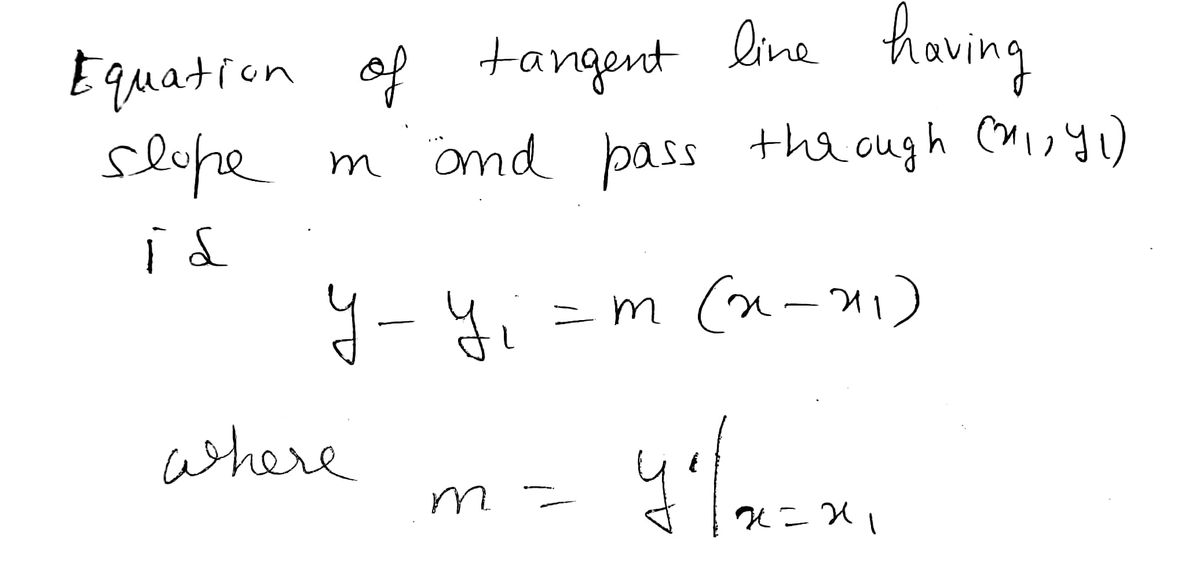 Equation of tangent line having
slope m and pass through (x₁, y₁)
is
y - y₁ = m (x - x₁)
where m = y'|ₓ₌ₓ₁